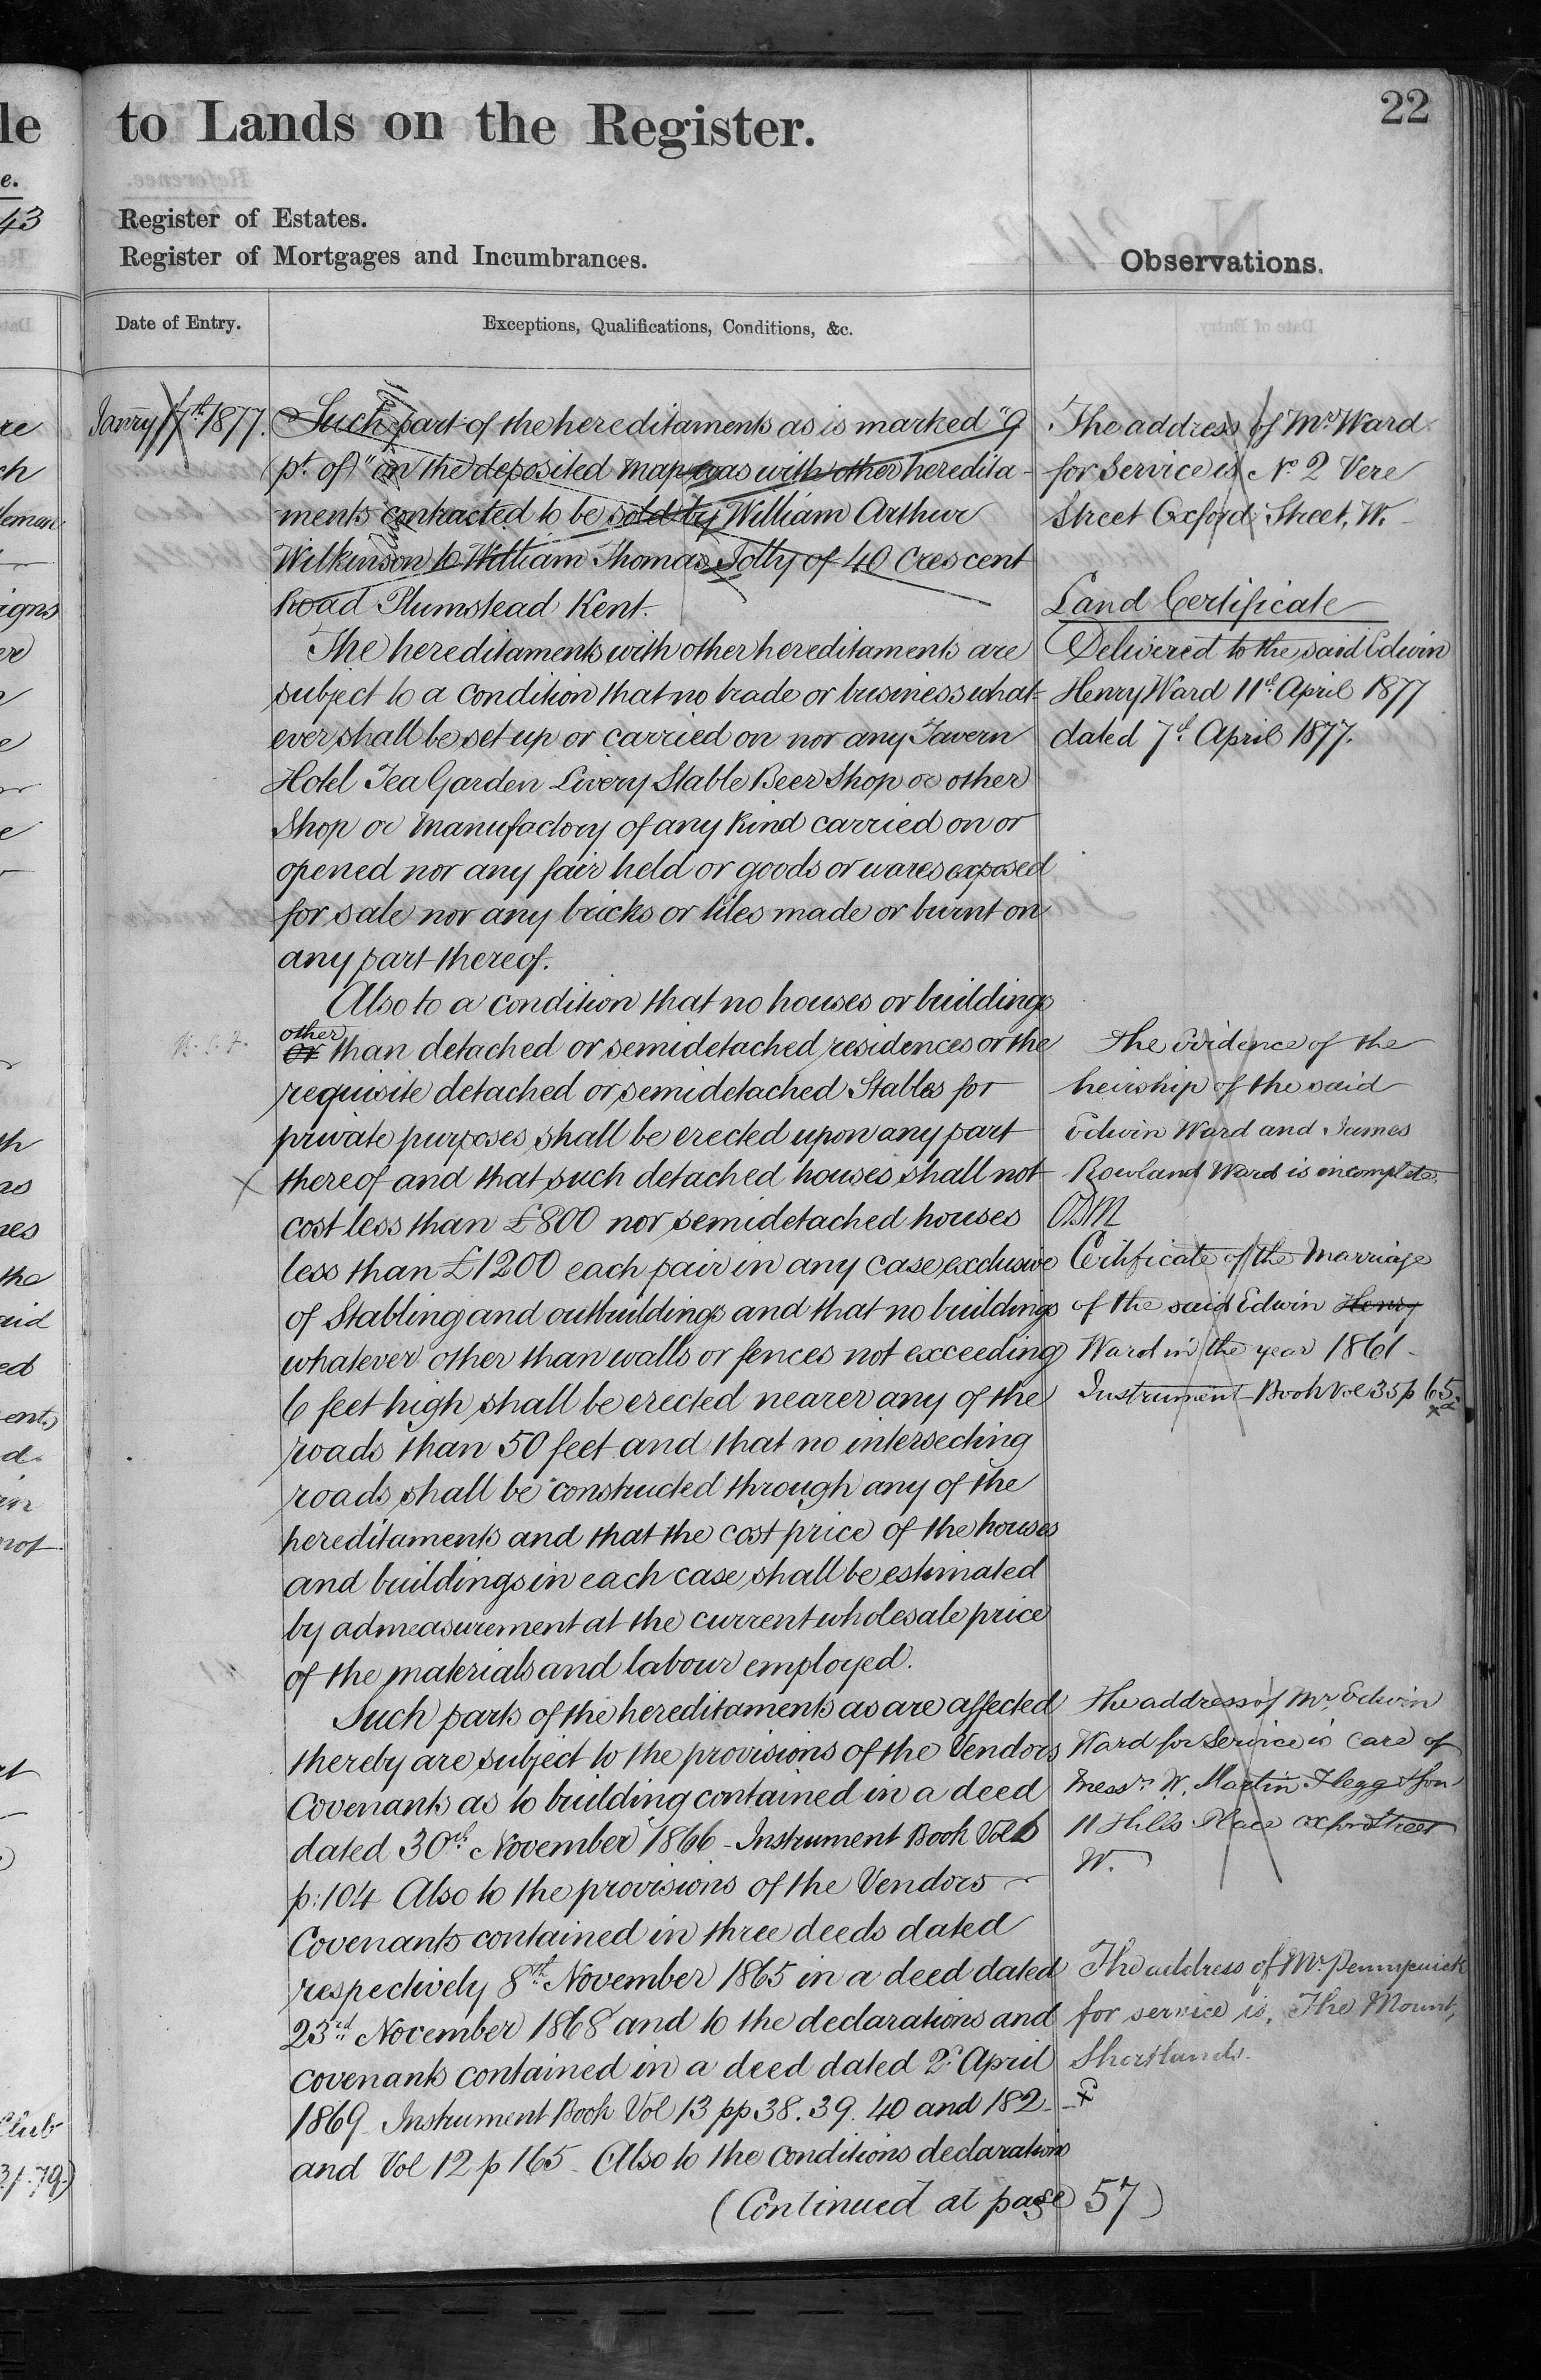 to Lands on the Register.
22
Register of Estates.
Register of Mortgages and Incumbrances.
Observations.
Date of Entry.
Exceptions, Qualifications, Conditions, &c.
Janry 17th 1877.
Such part of the hereditaments as is marked "9
pt. of" on the deposited map was with other heredita-
ments contracted to be sold by William Arthur
Wilkinson to William Thomas Jolly of 40 Crescent
Road Plumstead Kent.
The hereditaments with other hereditaments are
subject to a condition that no trade or business what-
ever shall be set up or carried on nor any Tavern
Hotel Tea Garden Livery Stable Beer Shop or other
Shop or Manufactory of any kind carried on or
opened nor any fair held or goods or wares exposed
for sale nor any bricks or tiles made or burnt on
any part thereof.
Also to a condition that no houses or buildings
other
or than detached or semidetached residences or the
requisite detached or semidetached Stables for
private purposes shall be erected upon any part
thereof and that such detached houses shall not
cost less than £800 nor semidetached houses
less than £1200 each pair in any case exclusive
of Stabling and outbuildings and that no buildings
whatever other than walls or fences not exceeding
6 feet high shall be erected nearer any of the
roads than 50 feet and that no intersecting
roads shall be constructed through any of the
hereditaments and that the cost price of the houses
and buildings in each case shall be estimated
by admeasurement at the current wholesale price
of the materials and labour employed.
Such parts of the hereditaments as are affected
thereby are subject to the provisions of the Vendors
Covenants as to building contained in a deed
dated 30th November 1866 - Instrument Book Vol 6
p: 104 Also to the provisions of the Vendors
Covenants contained in three deeds dated
respectively 8th November 1865 in a deed dated
23rd November 1868 and to the declarations and
covenants contained in a deed dated 2d April
1869 Instrument Book Vol 13 pp 38. 39. 40 and 182
and Vol 12 p 165 - Also to the conditions declarations
(Continued at page 57)
The address of Mr Ward
for Service is No 2 Vere
Street Oxford Street, W.
Land Certificate
Delivered to the said Edwin
Henry Ward 11th April 1877
dated 7th April 1877.
The evidence of the
heirship of the said
Edwin Ward and James
Rowland Ward is incomplete.
Certificate of the Marriage
of the said Edwin Henry
Ward in the year 1861 -
Instrument Book Vol 35 p 65
The address of Mr Edwin
Ward for Service is care of
Messrs W. Martin Flegg & Son
11 Hills Place Oxford Street
W.
The address of Mr Pennycuick
for service is, The Mount,
Shortlands.